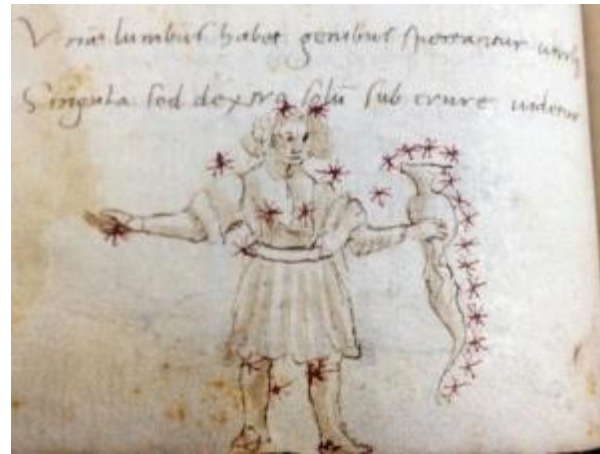 Vnā lumbus habet genibus spectantur
Singula sed dextro solū sub crure uidetur